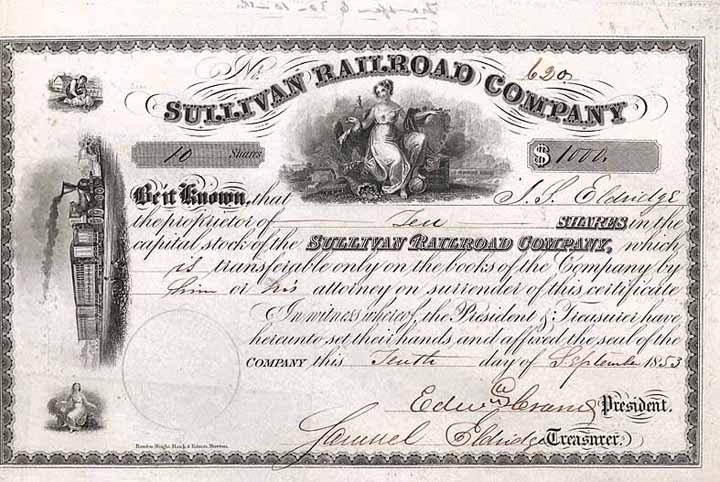 No. 620
SULLIVAN RAILROAD COMPANY
10 Shares
$ 1000.
Be it Known, that J. S. Eldridge
the proprietor of Ten SHARES in the
capital stock of the SULLIVAN RAILROAD COMPANY, which
is transferable only on the books of the Company by
him or his attorney on surrender of this certificate
In witness whereof, the President & Treasurer have
hereunto set their hands and affixed the seal of the
COMPANY this Tenth day of September 1853
Edwd Crane President.
Samuel Eldridge Treasurer.
Rawdon, Wright, Hatch & Edson, Boston.